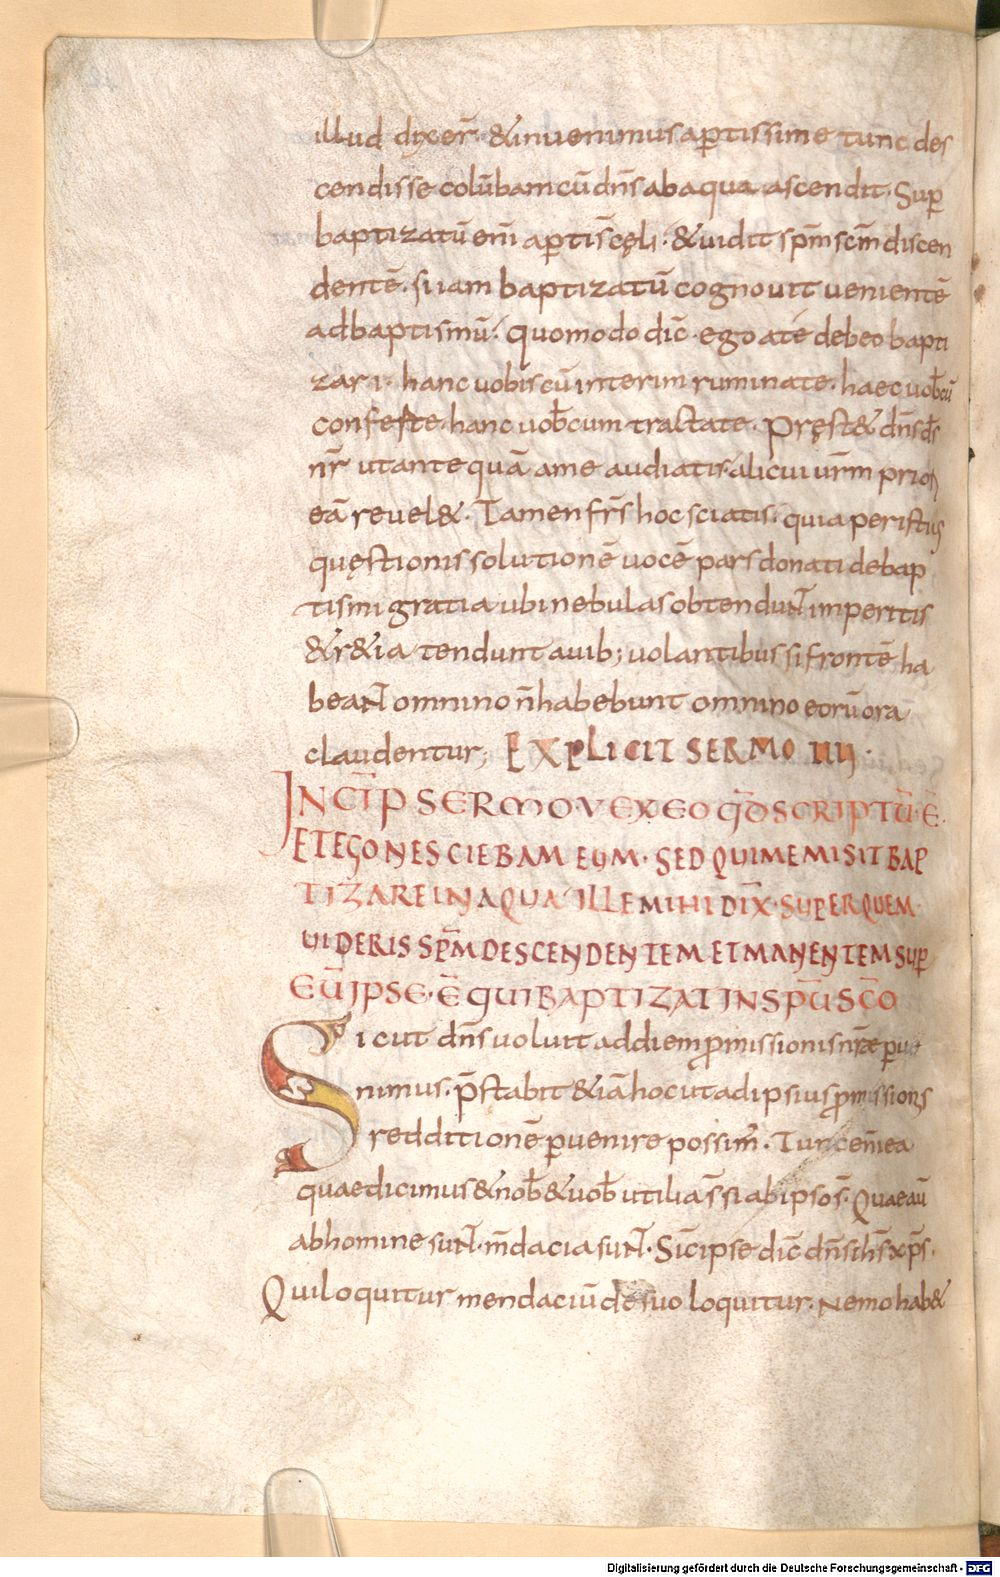 illud dixer̄. &inuenimus aꝑtissime tunc des
cendisse colūbam cū dn̄s ab aqua ascendit. Suꝑ
baptizatū eni̅ aꝑtis cęli. & uidit sp̅m sc̅m discen
dentē. si iam baptizatū cognouit uenientē
ad baptismū. quomodo dic̅. ego a te debeo bapti
zari. hanc uobiscū interim ruminate. haec uob̅cū
conferte. hanc uob̅cum tractate. Pręst& dn̄s d̅s
nr̅ ut antequā a me audiatis. alicui ur̅m prior
eā reuel&. Tamen fr̅s hoc sciatis. quia per istius
quęstionis solutionē uocē pars donati de bap
tismi gratia ubi nebulas obtenduNT imperitis
&r&ia tendunt auib; uolantibus si frontē ha
beaNT omnino n̅ habebunt omnino eorū ora
claudentur; EXPLICIT SERMO IIII.
INCIP̅ SERMO V EX EO Q̅D SCRIPTŪ. Ē.
ET EGO NESCIEBAM EUM. SED QUI ME MISIT BAP
TIZARE IN AQUA ILLE MIHI DIX̅. SUPER QUEM
UIDERIS SP̅M DESCENDENTEM ET MANENTEM SUꝑ
EŪ IPSE. Ē QUI BAPTIZAT IN SP̅U SC̅O
Sicut dn̄s uoluit ad diem ꝓmissionis nr̅ae ꝑue
nimus. p̅stabit &iā hoc ut ad ipsius ꝓmissionis
redditionē ꝑuenire possim̅. Tunc eni̅ ea
quae dicimus & nob̅ & uob̅ utilia s̅ si ab ipso s̅. Quae aū
ab homine suNT. m̅dacia suNT. Sic̅ ipse dic̅ dn̄s ih̅s xp̅s.
Qui loquitur mendaciū de suo loquitur. Nemo hab&
Digitalisierung gefördert durch die Deutsche Forschungsgemeinschaft - DFG